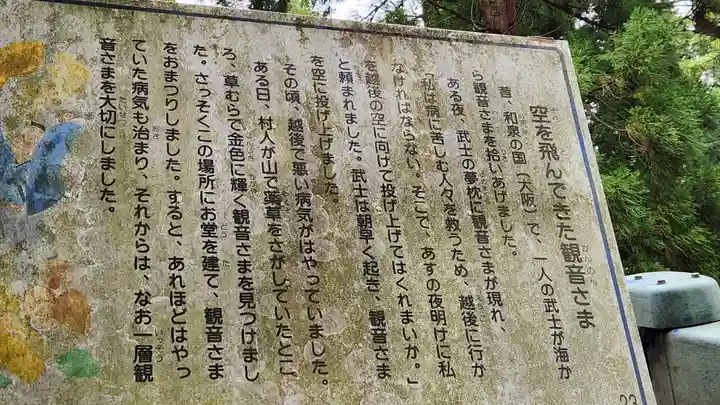 空を飛んできた観音さま
かんのん
昔、和泉の国(大阪)で、一人の武士が海か
ら観音さまを拾いあげました。
ある夜、武士の夢枕に観音さまが現れ、
「私は病に苦しむ人々を救うため、越後に行か
なければならない。そこで、あすの夜明けに私
を越後の空に向けて投げ上げてはくれまいか。」
と頼まれました。武士は朝早く起き、観音さま
を空に投げ上げました。
その頃、越後で悪い病気がはやっていました。
ある日、村人が山で薬草をさがしていたとこ
ろ、草むらで金色に輝く観音さまを見つけまし
た。さっそくこの場所にお堂を建て、観音さま
をおまつりしました。すると、あれほどはやっ
ていた病気も治まり、それからは、なお一層観
音さまを大切にしました。